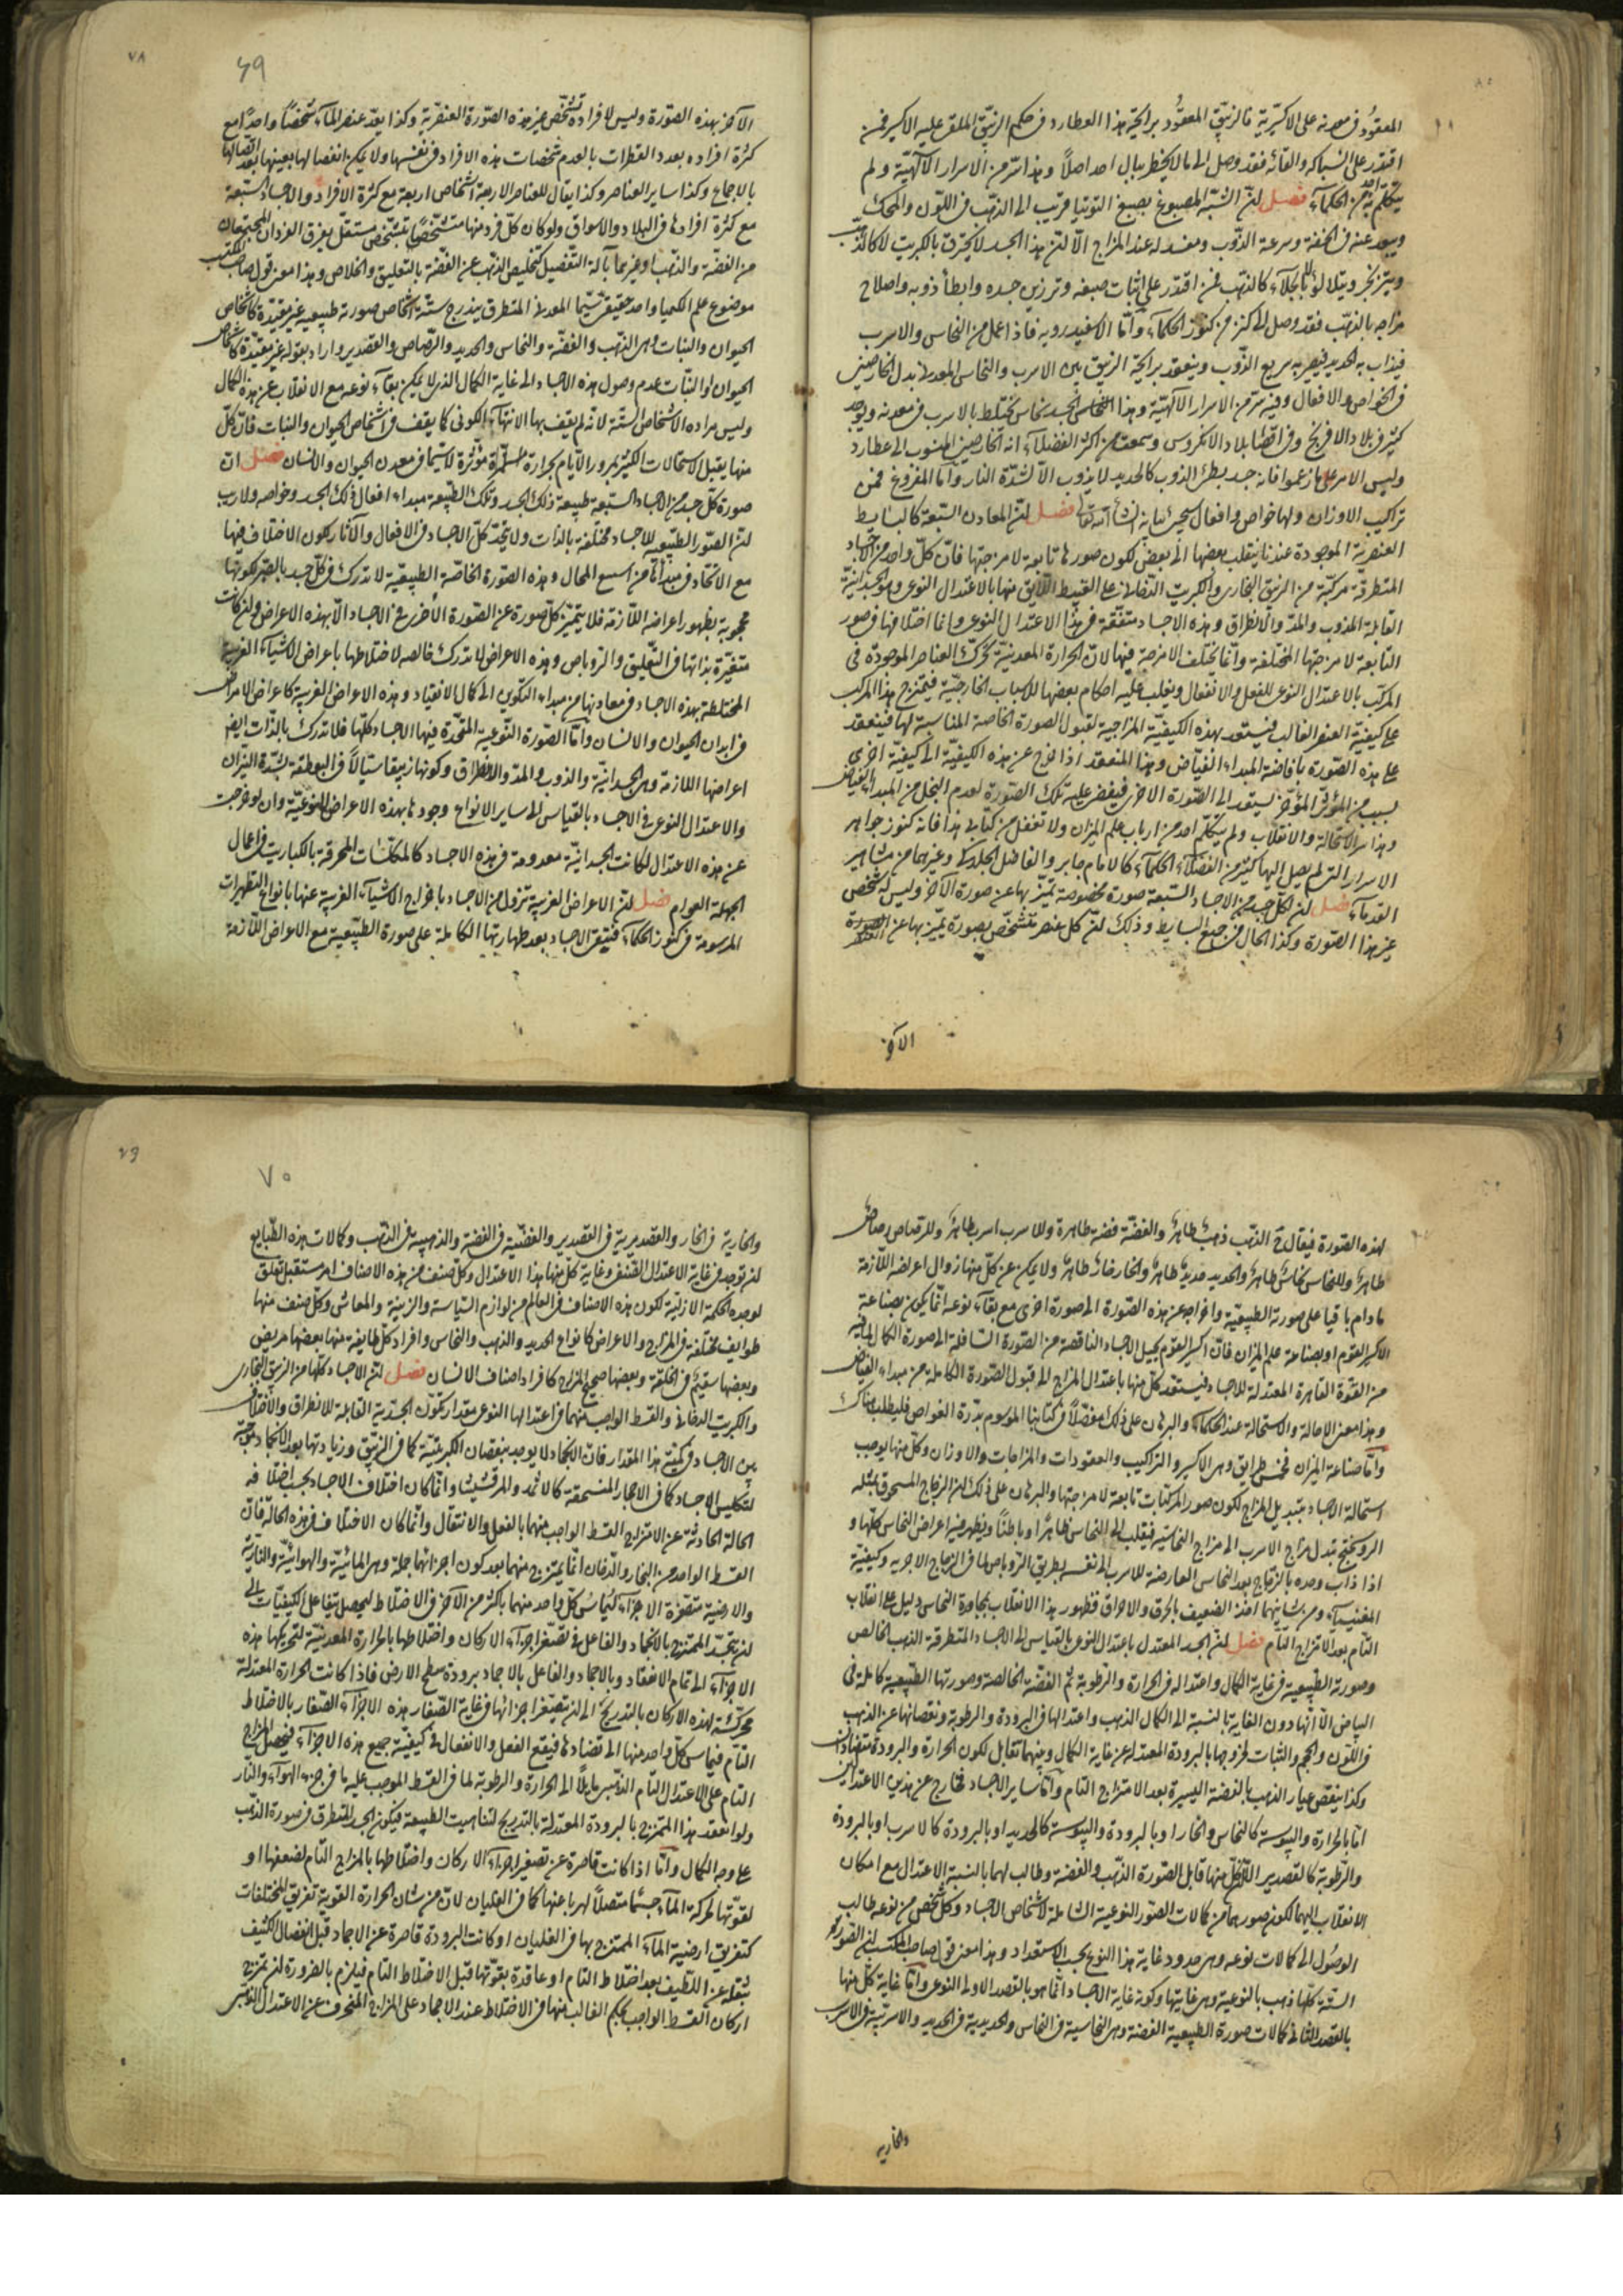 المعقود في معدنه على الاكسيرية فالزيبق المعقود برايحة هذا العطارد في حكم الزيبق الملقى عليه الاكسير فمن
اقتدر على السباكه والقائه فقد وصل الى ما لا يخطر ببال احد اصلاً وهذا سرّ من الاسرار الآلهيّة ولم
يتكلّم به احد من الحكمآء فصل انّ الشبّه المصبوغ بصبغ التوتيا قريب الى الذهب فى اللّون والمحكّ
ويبعد عنه فى الخفّة وسرعة الذّوب ومفسد له عند المزاج الّا انّ هذا الجسد لا يحترق بالكبريت
كالذهب فمن اقتدر على اثبات صبغه وترزين جسده وابطأ ذوبه واصلاح
مزاجه بالذّهب فقد وصل الى كنز من كنوز الحكمآء وامّا الاسفيدرويه فاذا عمل من النحاس والاسرب
فيذاب به الحديد فيصير به سريع الذّوب وينعقد برايحة الزيبق بين الاسرب والنحاس المعدنى بدل الخارصين
فى الخواص والافعال وفيه سرّ من الاسرار الآلهيّة وهذا النحاس الجسد نحاس مختلط بالاسرب فى معدنه ويوجد
كثير فى بلاد الافرنج وفى اقصا بلاد الانكروس وسمعت من اكثر الفضلآء انه الخارصين المنسوب الى عطارد
وليس الامر على ما زعموا فانه جسد بطئ الذوب كالحديد لا يذوب الّا لشدّة النار وامّا المفروغ فمن
تراكيب الاوزان ولها خواص وافعال سيجئ بيانه انشأ الله تعالى فصل انّ المعادن السّبعة كالبسايط
العنصريّة الموجودة عندنا ينقلب بعضها الى بعض لكون صورها تابعة لامزجتها فانّ كلّ واحد من الاجساد
المتطرقة مركّبة من الزيبق البخارى والكبريت الدّخانى على القسط اللّايق منها بالاعتدال النوعى وهو الجسدانيّة
القابلة للذوب والمدّ والانطراق وهذه الاجساد متّفقة فى هذا الاعتدال النوعى وانما اختلافها فى صور
التابعة لامزجتها المختلفة وانّما يختلف الامزجة فيها لانّ الحرارة المعدنيّة تحرّك العناصر الموجودة فى
المركّب بالاعتدال النوعى للفعل والانفعال ويغلب عليه احكام بعضها للاسباب الخارجيّة فيمتزج هذا المركّب
على كيفيّة العنصر الغالب فيستعد بهذه الكيفيّة المزاجية لقبول الصورة الخاصة المناسبة لها فينعقد
على هذه الصّورة بافاضة المبداء الفيّاض وهذا المنعقد اذا خرج عن هذه الكيفيّة الى كيفيّة اخرى
بسبب من المؤثّر المؤخّر يستعد الى الصّورة الاخرى فيفيض عليه تلك الصّورة لعدم البخل من المبداء الفيّاض
وهذا سر الاستحالة والانقلاب ولم يتكلّم احد من ارباب علم الميزان ولا تغفل من كتابى هذا فانه كنوز جواهر
الاسرار التى لم يصل اليها كثير من الفضلآء الحكمآء كالامام جابر والفاضل الجلدكى وغيرهما من مشاهير
القدمآء فصل انّ لكل جسد من الاجساد السّبعة صورة مخصوصة تميّز بها عن صورة الآخر وليس له شخص
غير هذا الصّورة وكذا الحال فى جميع البسايط وذلك انّ كل عنصر متشخّص بصورة يميّز بها عن العنصر
الآخر
٦٩
الآخر بهذه الصّورة وليس لافراده تشخّص غير هذه الصّورة العنصريّة وكذا يعدّ عنصر المآء شخصًا واحدًا مع
كثرة افراده بعدد القطرات بالعدم شخصات هذه الافراد فى نفسها ولا يمكن انفصالها بعينها بعد اتصالها
بالاجماع وكذا ساير العناصر وكذا يقال للعناصر الاربعة اشخاص اربعة مع كثرة الافراد والاجساد السّبعة
مع كثرة افرادها فى البلاد والاسواق ولو كان كلّ فرد منها متشخّصًا بتشخّص مستقلّ يفرق الفردان المجتمعان
من الفضّة والذهب او غيرهما بآلة التّفصيل كتخليص الذهب عن الفضّة بالتعليق والخلاص وهذا معنى قول صاحب المكتسب
موضوع علم الكيميا واحد حقيقى شيئًا المعدنى المتطرق يندرج ستّة اشخاص صورته طبيعيه غير مقيّدة كاشخاص
الحيوان والنبات وهى الذهب والفضّة والنحاس والحديد والرّصاص والقصدير واراد بقوله غير مقيّدة كاشخاص
الحيوان والنّبات عدم وصول هذه الاجساد الى غاية الكمال الذى لا يمكن بقآء نوعه مع الانقلاب عن هذه الكمال
وليس مراده الاشخاص الستّة لانّه لم يقف بها الانتهآء الكونى كما يقف فى اشخاص الحيوان والنبات فانّ كلّ
منها يقبل الاستحالات الكثيرة بمرور الايّام بحرارة مستمرّة مؤثّرة لا سيّما فى معدن الحيوان والانسان فصل ان
صورة كلّ جسد من الاجساد السّبعة طبيعة ذلك الجسد وتلك الطّبيعة مبداء افعال ذلك الجسد وخواصه ولا ريب
انّ الصّور الطّبيعيه للاجساد مختلفة بالذات ولا يتّحد كلّ الاجساد فى الافعال والآثار لكون الاختلاف فيها
مع الاتحاد فى مبدأها من اشنع المحال وهذه الصّورة الخاصّة الطبيعيّة لا تدرك فى كلّ جسد بالبصر لكونها
محجوبة بظهور اعراضه اللّازمة فلا يتميّز كلّ صورة عن الصّورة الأخرى فى الاجساد الّا بهذه الاعراض وان كانت
متغيّرة بذاتها فى التّعليق والروباص وهذه الاعراض لا تدرك خالصه لاختلاطها باعراض الاشيآء الغريبة
المختلطة بهذه الاجساد فى معادنها من مبداء التكوين الى كمال الانعقاد وهذه الاعراض الغريبة كاعراض الامراض
فى ابدان الحيوان والانسان وامّا الصّورة النّوعية المتّحدة فيها الاجساد كلّها فلا تدرك بالذّات ايضًا
اعراضها اللازمة وهى الجسدانيّة والذوب والمد والانطراق وكونها زيبقا سيّالاً فى البوطقة بشدّة النّيران
والاعتدال النوعى فى الاجساد بالقياس الى ساير الانواع وجودها بهذه الاعراض النوعيّة وان لو خرجت
عن هذه الاعتدال لكانت الجسدانيّة معدومة فى هذه الاجساد كالمكلّسات المحرقة بالكباريت فى اعمال
الجهلة العوام فصل انّ الاعراض الغريبة تزول من الاجساد باخراج الاشيآء الغريبة عنها بانواع التطهيرات
المرسومة فى كنوز الحكمآء فتبقى الاجساد بعد طهارتها الكاملة على صورة الطّبيعية مع الاعراض اللّازمة
لهذه الصّورة فيقال فى الذهب ذهبٌ طاهرٌ والفضّة فضة طاهرة وللاسرب اسرب طاهرٌ وللرصاص رصاص
طاهرٌ وللنحاس نحاسٌ طاهرٌ والحديد حديدٌ طاهرٌ والخار خارٌ طاهرٌ ولا يمكن عن كلّ منها زوال اعراضه اللّازمة
ما دام باقيا على صورة الطبيعيّة واخراجه عن هذه الصّورة الى صورة اخرى مع بقآء نوعه انّما يكون بصناعة
الاكسير القوم او بصناعة علم الميزان فانّ اكسير القوم يحيل الاجساد الناقصة من الصّورة السّافلة الى صورة الكمال لما فيه
من القوّة القاهرة المعتدلة للاجساد فيستعد كلّ منها باعتدال المزاج الى قبول الصّورة الكاملة من مبداء الفيّاض
وهذا معنى الاحالة والاستحالة عند الحكمآء والبرهان على ذلك مفصّلاً فى كتابنا الموسوم بدرّة الغواص فليطلب هناك
وامّا صناعة الميزان فخمس طرايق وهى الاكسير والتراكيب والمعقودات والمزاجات والاوزان وكل منها يوجب
استحالة الاجساد بتبديل المزاج لكون صور المركّبات تابعة لامزجتها والبرهان على ذلك انّ الزجاج المسحوق بمثله
الروسختج تبدل مزاج الاسرب الى مزاج النحاسيّة فيقلب الى النحاس ظاهرًا وباطنًا ويظهر فيه اعراض النحاس كلّها و
اذا ذاب وحده بالزجاج يعد النحاس العارضة للاسرب الى نفسه بطريق الرّوباص لما فى الزجاج الاجزيه وكيفيّة
المغنيسيآء ومن شانهما اخذ الضعيف بالحرق والاحراق فظهور هذا الانقلاب بمجاورة النحاس دليل على انقلاب
التّام بعد الامتزاج التام فصل انّ الجسد المعتدل باعتدال النوعى بالقياس الى الاجساد المتطرقة الذهب الخالص
وصورته الطّبيعية فى غاية الكمال واعتداله فى الحرارة والرّطوبة ثم الفضّة الخالصة وصورتها الطّبيعية كاملة فى
البياض الّا انّها دون الغاية بالنسبة الى الكمال الذهب واعتدالها فى البرودة والرطوبة ونقصانها عن الذهب
فى اللّون والحجم والثبات لمزوجها بالبرودة المعتدلة عن غاية الكمال وبينهما تقابل لكون الحرارة والبرودة متضادان
وكذا ينقص عيار الذهب بالفضة اليسيرة بعد الامتزاج التام وامّا ساير الاجساد فخارج عن هذين الاعتدالين
امّا بالحرارة واليبوسة كالنحاس والخار او بالبرودة واليبوسة كالحديد او بالبرودة كالاسرب او بالبرودة
والرّطوبة كالقصدير الّا ان كلّ منها قابل الصّورة الذّهب والفضة وطالب لهما بالنسبة الاعتدال مع امكان
الانقلاب اليهما لكون صورهما من كمالات الصّور النوعية الشاملة لاشخاص الاجساد وكلّ شخص من نوعه طالب
الوصول الى كمالات نوعه وهى حدود غاية هذا النوع بحسب الاستعداد وهذا معنى قول صاحب المكتسب انّ الصّورة
الستّة كلّها ذهب بالنوعية وهى غايتها وكونه غاية الاجساد انّما هو بالقصد الاوّل النوعى وامّا غاية كلّ منها
بالقصد الثانى كمالات صورة الطبيعية الفضة وهى النحاسية فى النحاس والحديدية فى الحديد والاسربيّة فى الاسرب
والخاريه
٧٠
والخارية فى الخار والقصديرية فى القصدير والفضيّة فى الفضة والذهبيه فى الذهب وكمالات هذه الطّبايع
ان توجد فى غاية الاعتدال الصّنفى وغاية كلّ منها هذا الاعتدال وكلّ صنف من هذه الاصناف امر مستقبل تعلّق
لوجده الحكمة الازليّة لكون هذه الاصناف فى العالم من لوازم السّياسة والزينة والمعاش وكلّ صنف منها
طوايف مختلفة فى المزاج والاعراض كانواع الحديد والذهب والنحاس وافراد كلّ طايفة منها بعضها مريض
وبعضها سقيم فى الخلقة وبعضها صحيح المزاج كافراد اصناف الانسان فصل انّ الاجساد كلّها من الزيبق البخارى
والكبريت الدخانى والقسط الواجب منهما فى اعتدالها النوعى مقدار تكوّن الجسديّة القابلة للانطراق والاختلاف
بين الاجساد فى كميّة هذا المقدار فانّ الانجماد لا يوجد بنقصان الكبريتيّة كما فى الزيبق وزيادتها بعد الانجماد موجبة
لتكليس الاجساد كما فى الاحجار المنسحقة كالاثمد والمرقشيثا وانّما كان اختلاف الاجساد بحسب اختلافه
الحالة الحادثة عن الامتزاج القسط الواجب منهما بالفعل والانتقال وانّما كان الاختلاف فى هذه الحالة فانّ
القسط الواحد من البخار والدخان انّما يمتزج منهما بعد كون اجزائهما جملة وهى المائيّة والهوائيّة والناريّة
والارضية متصغّرة الاجزآء ليماسّ كلّ واحد منهما باكثر من الآخر فى الاختلاط ليحصل بتفاعل الكيفيّات الى
ان يتّحد الممتزج بالانجماد والفاعل فى تصغير اجزآء الاركان واختلاطها بالحرارة المعدنيّة لتحريكها هذه
الاجزآء الى تمام الانعقاد وبالاجماد والفاعل بالاجماد برودة سطح الارض فاذا كانت الحرارة المعتدلة
محرّكة لهذه الاركان بالتدريج الى ان يصيّر اجزائها فى غاية الصّغار هذه الاجزآء الصّغار بالاختلاط
التّام فيماس كلّ واحد منها الى تضادها فيقع الفعل والانفعال فى كيفيّة جميع هذه الاجزآء فيحصل المزاج
التام على الاعتدال التّام الذّهبى مايلاً الى الحرارة والرطوبة لما فى القسط الموجب عليه ما فى جزء الهوآء والنّار
ولو انعقد هذا الممتزج بالبرودة المعتدلة بالتدريج لتناهيت الطبيعة فيكون الجسد المتطرق فى صورة الذّهب
على وجه الكمال وامّا اذا كانت قاصرة عن تصغير اجزآء الاركان واختلاطها بالمزاج التّام لضعفها او
لقوّتها لحركة المآء جسمًا متصلاً لهربا عنها كما فى الغليان لانّ من شان الحرارة القوية تفريق المختلفات
كتفريق ارضية المآء الممتزج بها فى الغليان او كانت البرودة قاصرة عن الاجماد قبل انفصال الكثيف
بثقله عن اللّطيف بعد اختلاط التام او عاقدة بقوّتها قبل الاختلاط التام فيلزم بالضرورة ان يمتزج
اركان القسط الواجب بحكم الغالب منها فى الاختلاط عند الاجماد على المزاج المنحرف عن الاعتدال الذّهبى